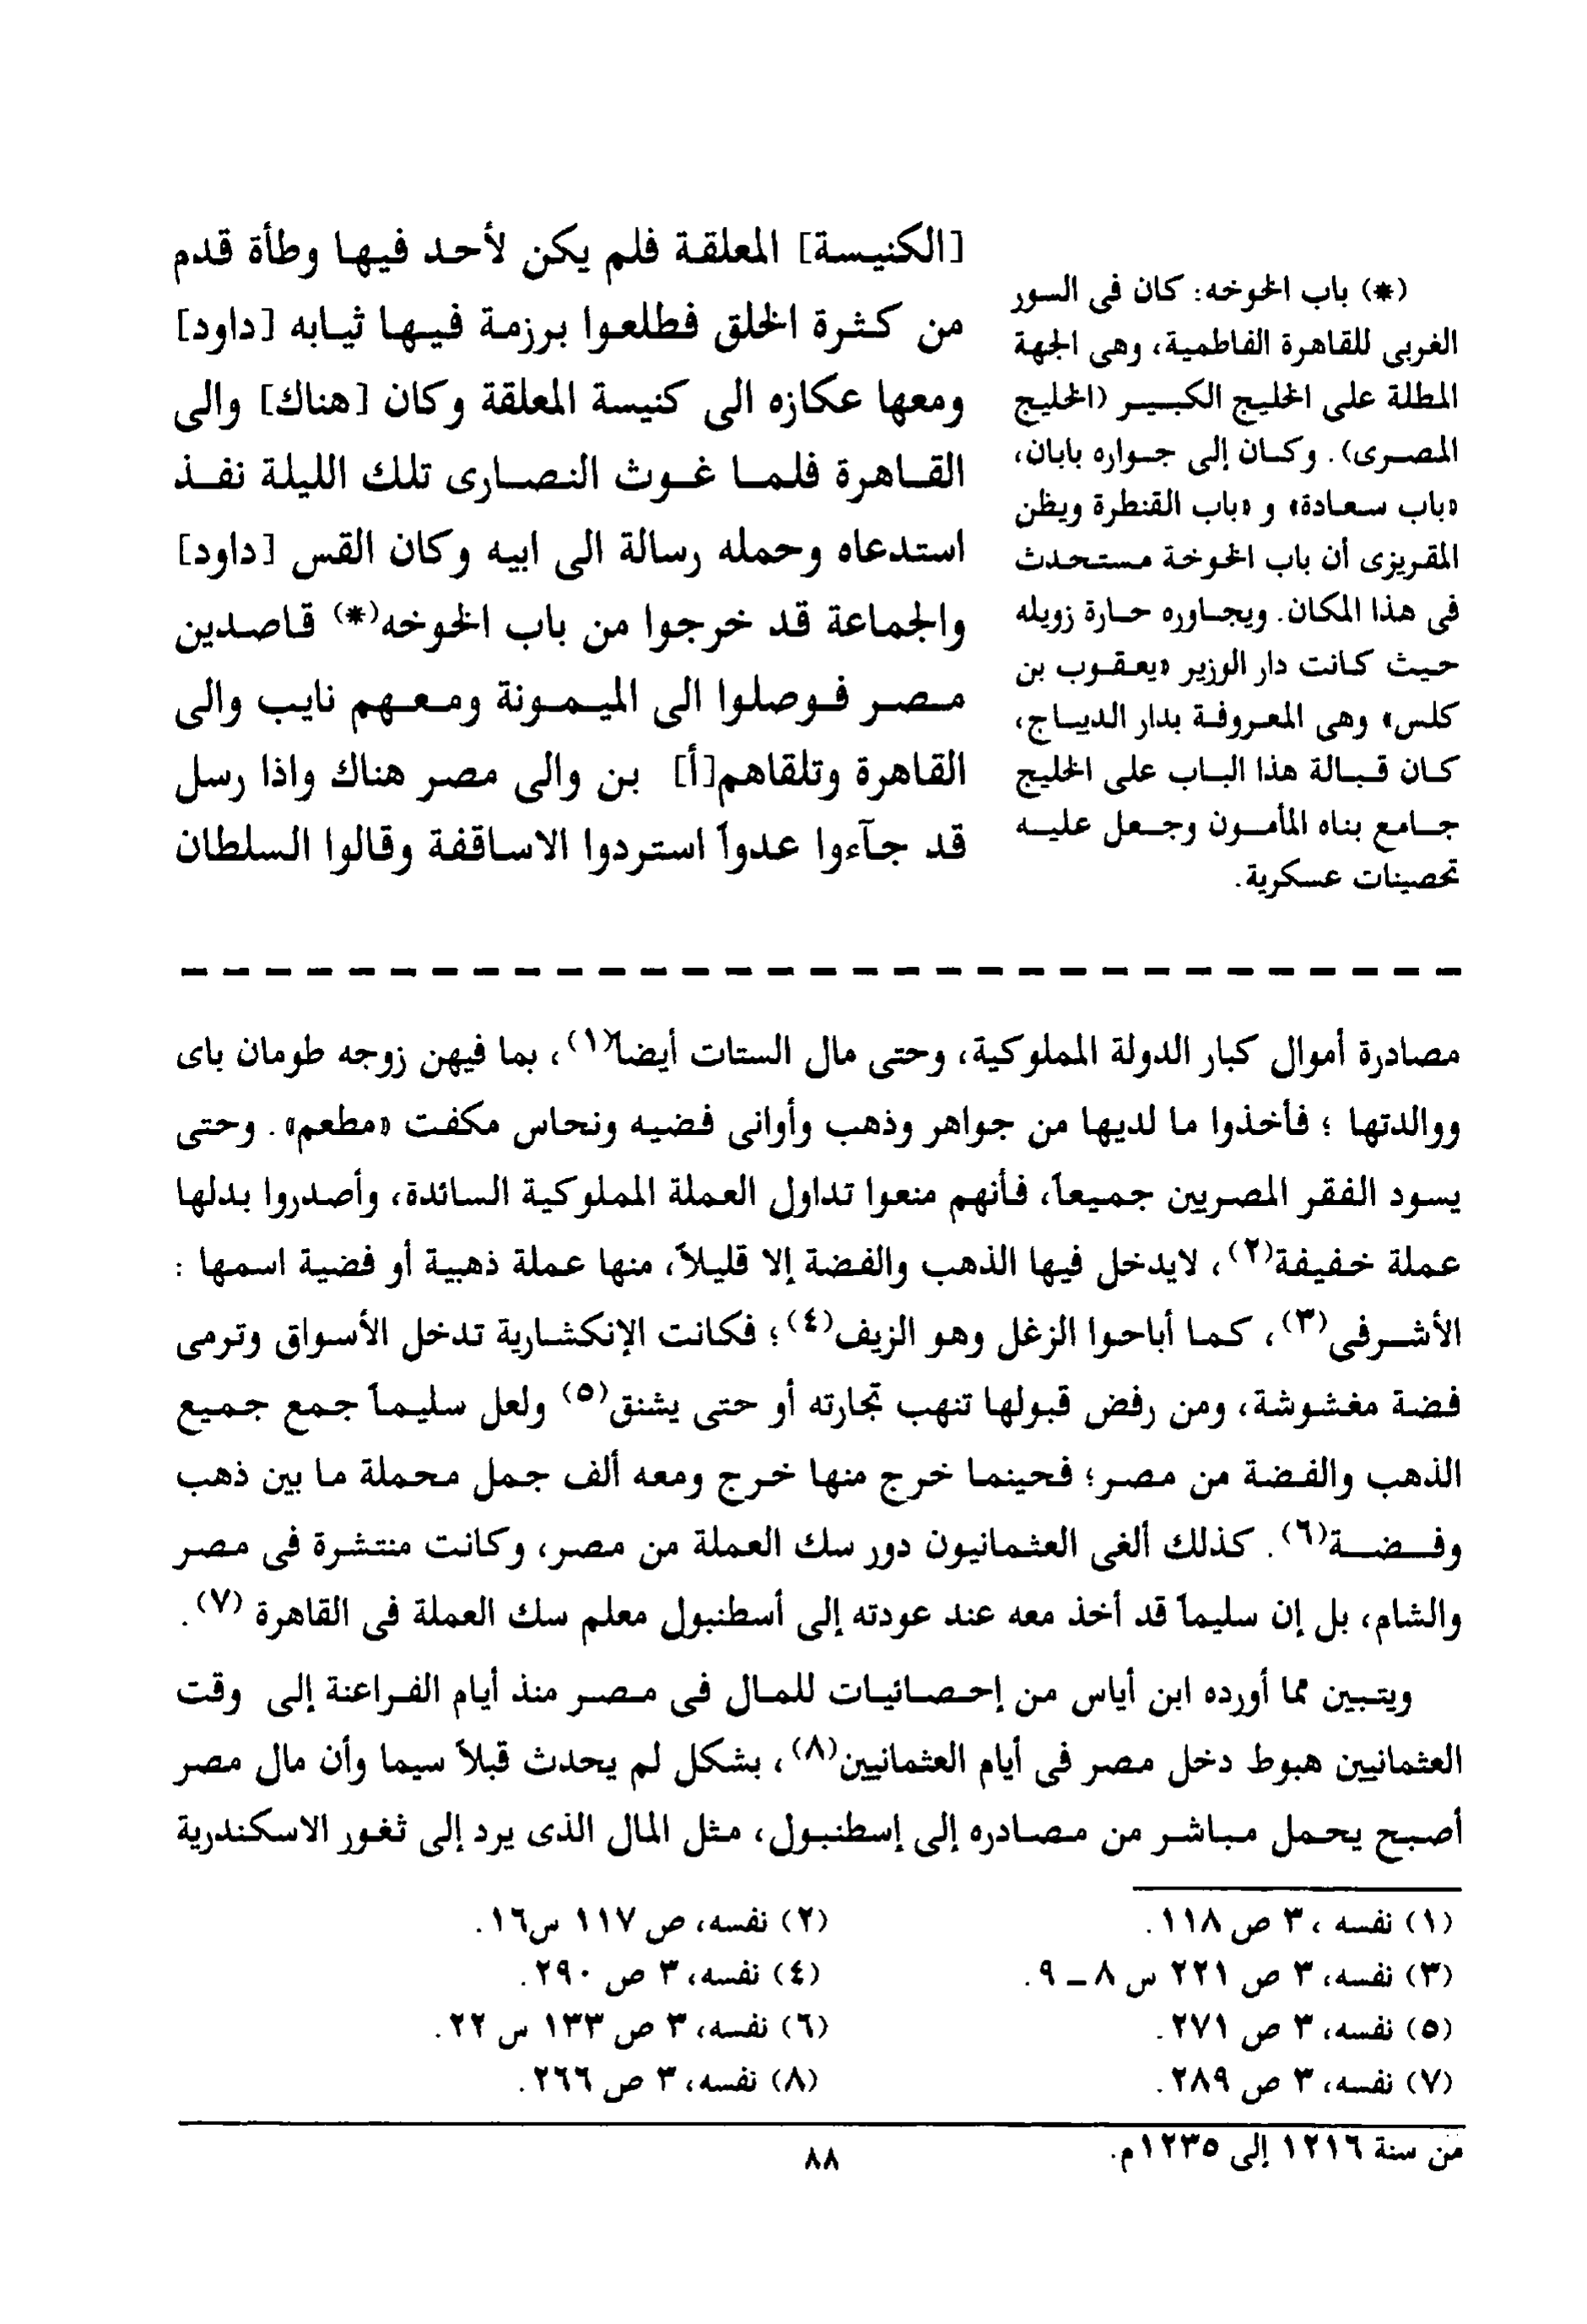 [الكنيسة] المعلقة فلم يكن لأحد فيها وطأة قدم
من كثرة الخلق فطلعوا برزمة فيها ثيابه [داود]
ومعها عكازه الى كنيسة المعلقة وكان [هناك] والى
القاهرة فلما غوث النصارى تلك الليلة نفذ
استدعاه وحمله رسالة الى ابيه وكان القس [داود]
والجماعة قد خرجوا من باب الخوخه(*) قاصدين
مصر فوصلوا الى الميمونة ومعهم نايب والى
القاهرة وتلقاهم[أ] بن والى مصر هناك واذا رسل
قد جآءوا عدواً استردوا الاساقفة وقالوا السلطان
(*) باب الخوخه: كان فى السور
الغربى للقاهرة الفاطمية، وهى الجهة
المطلة على الخليج الكبير (الخليج
المصرى). وكان إلى جواره بابان،
«باب سعادة» و «باب القنطرة ويظن
المقريزى أن باب الخوخة مستحدث
فى هذا المكان. ويجاوره حارة زويله
حيث كانت دار الوزير «يعقوب بن
كلس» وهى المعروفة بدار الديباج،
كان قبالة هذا الباب على الخليج
جامع بناه المأمون وجعل عليه
تحصينات عسكرية.
مصادرة أموال كبار الدولة المملوكية، وحتى مال الستات أيضا(١)، بما فيهن زوجه طومان باى
ووالدتها ؛ فأخذوا ما لديها من جواهر وذهب وأوانى فضيه ونحاس مكفت «مطعم». وحتى
يسود الفقر المصريين جميعاً، فأنهم منعوا تداول العملة المملوكية السائدة، وأصدروا بدلها
عملة خفيفة(٢)، لايدخل فيها الذهب والفضة إلا قليلاً، منها عملة ذهبية أو فضية اسمها :
الأشرفى(٣)، كما أباحوا الزغل وهو الزيف(٤)؛ فكانت الإنكشارية تدخل الأسواق وترمى
فضة مغشوشة، ومن رفض قبولها تنهب تجارته أو حتى يشنق(٥) ولعل سليماً جمع جميع
الذهب والفضة من مصر؛ فحينما خرج منها خرج ومعه ألف جمل محملة ما بين ذهب
وفضة(٦). كذلك ألغى العثمانيون دور سك العملة من مصر، وكانت منتشرة فى مصر
والشام، بل إن سليماً قد أخذ معه عند عودته إلى أسطنبول معلم سك العملة فى القاهرة (٧).
ويتبين مما أورده ابن أياس من إحصائيات للمال فى مصر منذ أيام الفراعنة إلى وقت
العثمانيين هبوط دخل مصر فى أيام العثمانيين(٨)، بشكل لم يحدث قبلاً سيما وأن مال مصر
أصبح يحمل مباشر من مصادره إلى إسطنبول، مثل المال الذى يرد إلى ثغور الاسكندرية
(١) نفسه ، ٣ ص ١١٨.
(٢) نفسه، ص ١١٧ س١٦.
(٣) نفسه، ٣ ص ٢٢١ س ٨ - ٩.
(٤) نفسه، ٣ ص ٢٩٠.
(٥) نفسه، ٣ ص ٢٧١.
(٦) نفسه، ٣ ص ١٣٣ س ٢٢.
(٧) نفسه، ٣ ص ٢٨٩.
(٨) نفسه، ٣ ص ٢٦٦.
من سنة ١٢١٦ إلى ١٢٣٥م.
٨٨